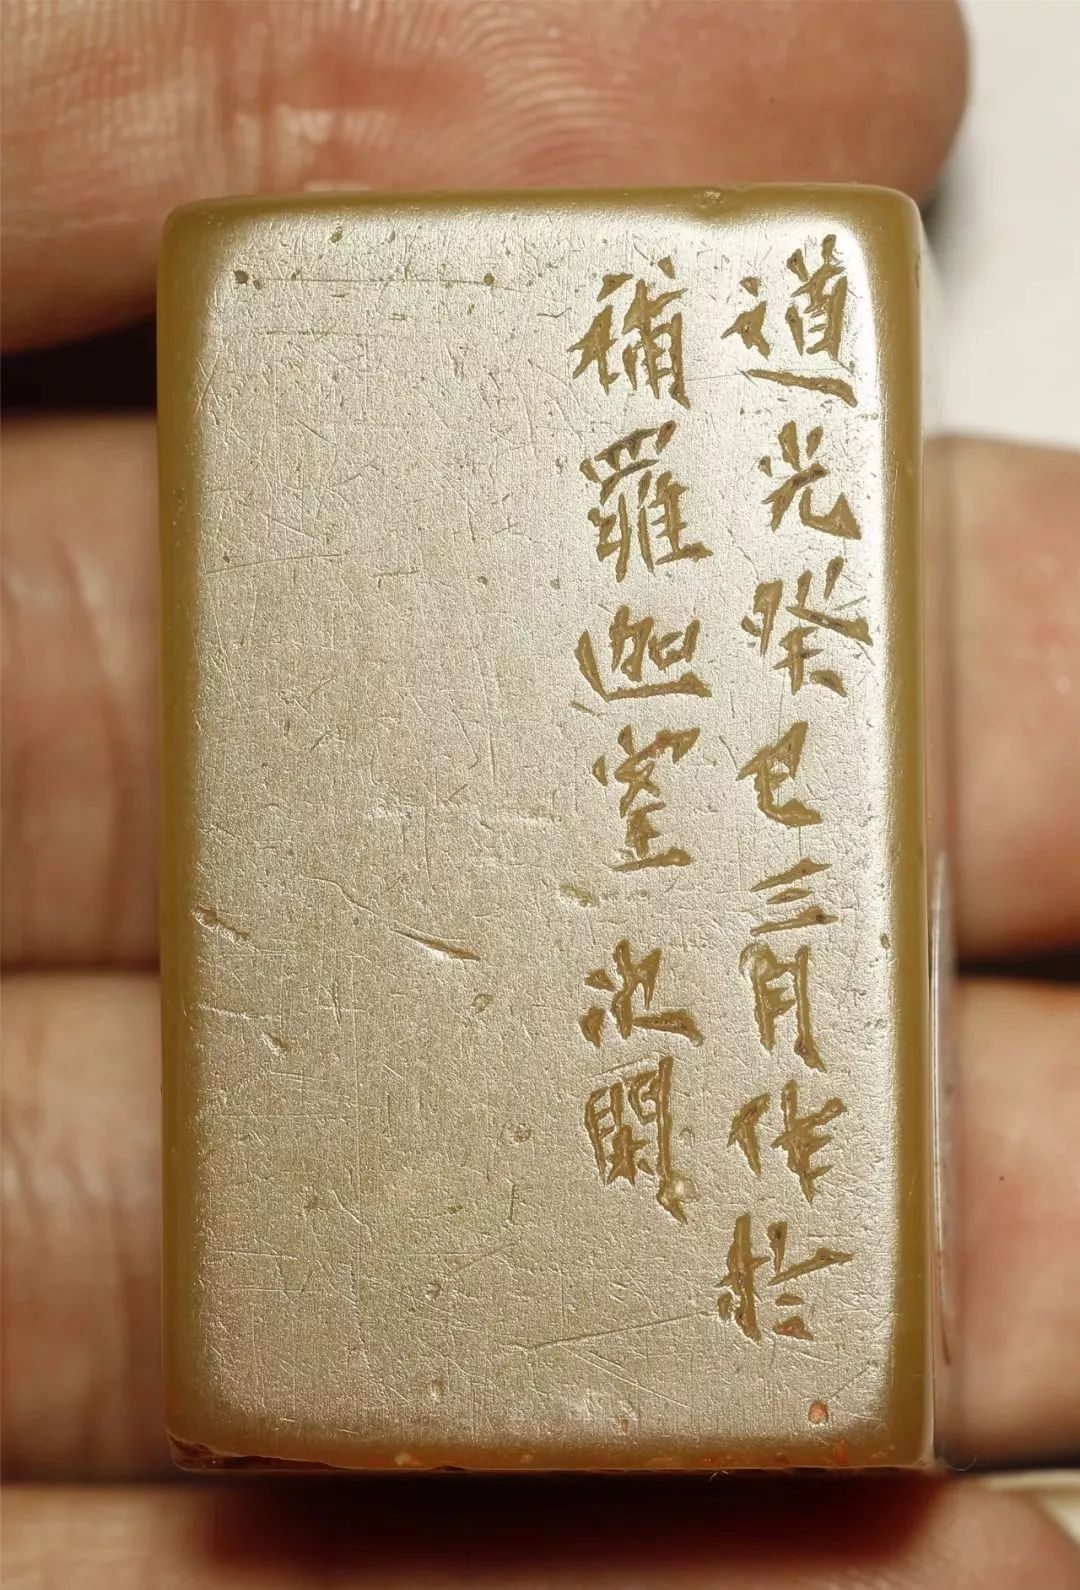 道光癸巳三月作於
補羅迦室次閑